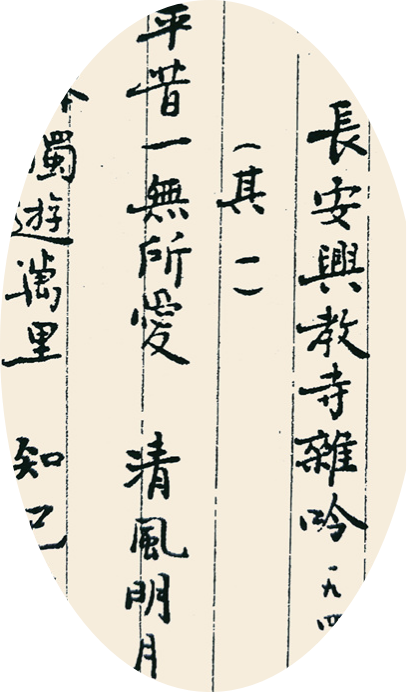 長安興教寺雜吟 一九四
(其一)
平昔一無所愛 清風明月
獨遊萬里 知己